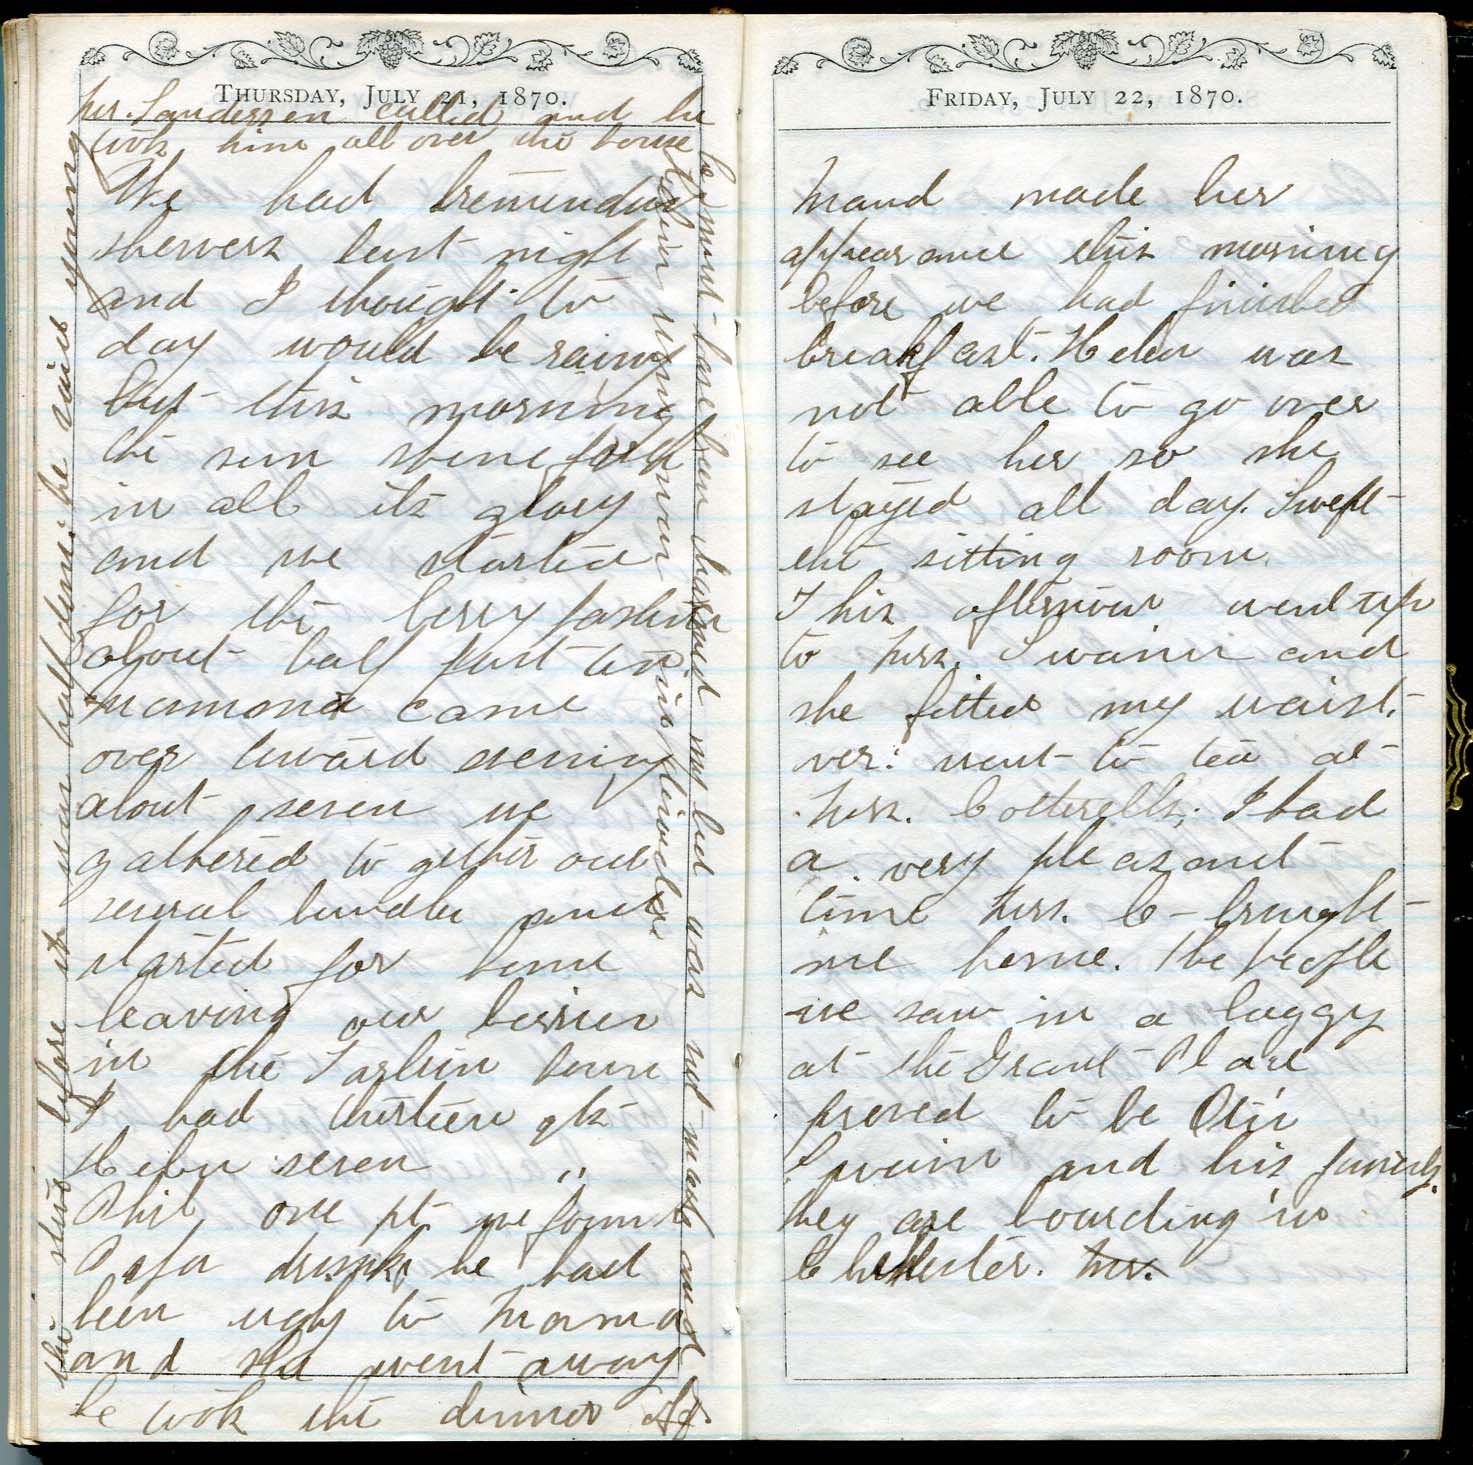 THURSDAY, JULY 21, 1870.
Mr. Sanderson called and he
took him all over the house
We had tremendous
showers last night
and I thought to
day would be rainy
but this morning
the sun shone forth
in all its glory
and we started
for the berry pasture
about half past ten
mamma came
over toward evening
about seven we
gathered together our
several bundles and
started for home
leaving our berries
in the house
I had thirteen qts
Helen seven "
Phil one pt we found
Papa drunk, he had
been ugly to Mama
and she went away
he took the dinner off
the stove before it was half done. he said young
Vermont have been harmed my bed was not made and
down
FRIDAY, JULY 22, 1870.
Maud made her
appearance this morning
before we had finished
breakfast. Helen was
not able to go over
to see her so she
stayed all day. Swept
the sitting room.
This afternoon went up
to Mrs. Swain and
she fitted my waist.
went to tea at
Mrs. Cotterells; I had
a very pleasant
time Mrs. C- brought
me home. The people
we saw in a buggy
at the Grant Place
proved to be Otis
Swain and his family.
they are boarding in
Chichester. Mr.